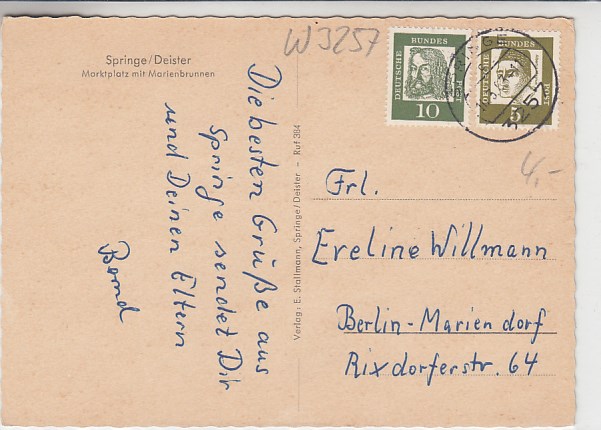 Springe/Deister
Marktplatz mit Marienbrunnen
W3257
DEUTSCHE
BUNDES
POST
10
DEUTSCHE
BUNDES
POST
5
3257
4,-
Die besten Grüße aus
Springe sendet Dir
und Deinen Eltern
Bernd
Verlag: E. Stallmann, Springe/Deister - Ruf 384
Frl.
Eveline Willmann
Berlin-Mariendorf
Rixdorferstr. 64